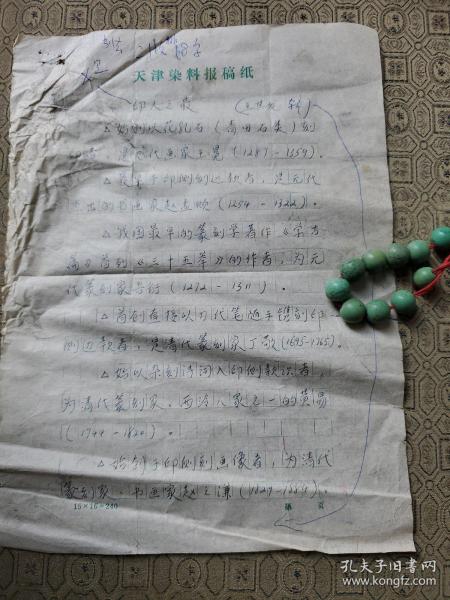 天津染料报稿纸
印人之最
△始創以花乳石(青田石类)刻
印者,為元代画家王冕(1287-1359)。
△最早于印側刻边款者,是元代
杰出的书画家赵孟頫(1254-1322)。
△我国最早的篆刻学著作《学古
编》首列《三十五举》的作者,为元
代篆刻家吾衍(1272-1311)。
△首创直接以刀代笔随手镌刻印
側边款者,是清代篆刻家丁敬(1695-1765)。
△始以朵刻诗词入印側款识者,
为清代篆刻家、西泠八家之一的黄易
(1744-1802)。
△始創于印側刻画像者,为清代
篆刻家、书画家赵之谦(1829-1884)。
15×16=240
第 页
孔夫子旧书网
www.kongfz.com